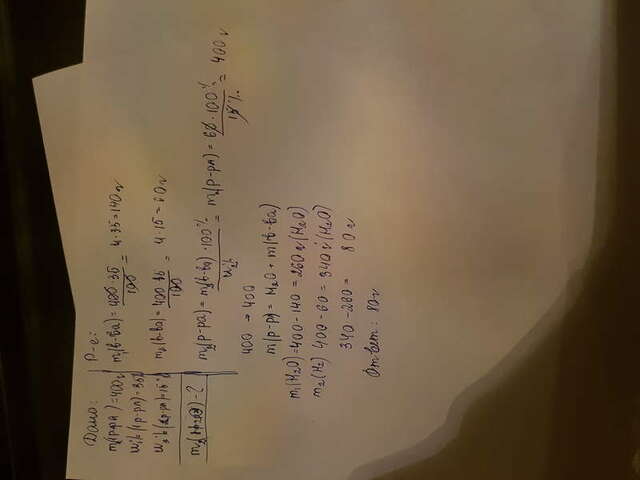 Дано:
m(р-ра) = 400 г
w₁%(р-ра) = 35%
w₂%(р-ра) = 15%
Р-е:
m₁(в-ва) = 400·35/100 = 4·35 = 140 г
m₂(в-ва) = 400·15/100 = 4·15 = 60 г
m₂(р-ра) = m₂(в-ва)·100%/w₂% = m₂(р-ра) = 60·100%/15% = 400 г
400 = 400
m(р-р) = H₂O + m(в-ва)
m₁(H₂O) = 400-140 = 260 г (H₂O)
m₂(H₂) 400-60 = 340 г (H₂O)
340-260 = 80 г
Ответ: 80 г